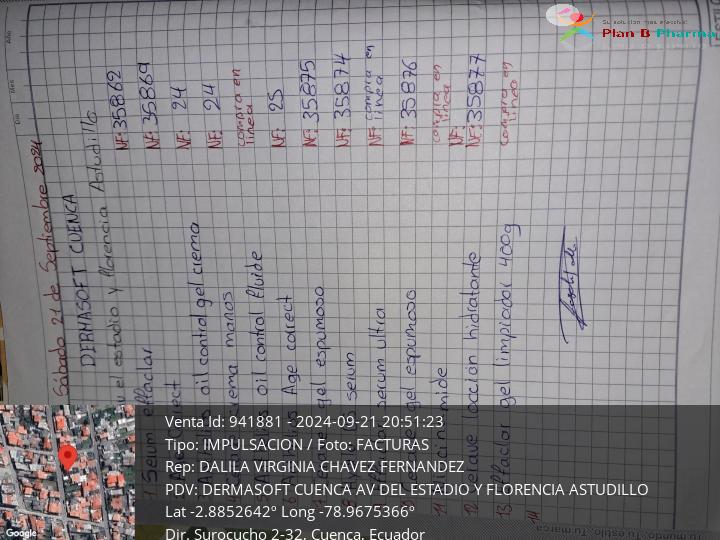 Su solución más efectiva!
Plan B Pharma
Año
Mes
Día
Sábado 21 de Septiembre 2024
DERMASOFT CUENCA
el estadio y florencia Astudillo
1 Serum effaclar NF: 35862
NF: 35869
oil control gel crema NF: 24
crema manos NF: 24
oil control fluide compra en linea
Age correct NF: 25
gel espumoso NF: 35875
serum NF: 35874
serum ultra NF: compra en linea
gel espumoso NF: 35876
mide compra en linea
12 locción hidratante NF: NF: 35877
13 effaclar gel limpiador 400g compra en linea
14
Venta Id: 941881 - 2024-09-21 20:51:23
Tipo: IMPULSACION / Foto: FACTURAS
Rep: DALILA VIRGINIA CHAVEZ FERNANDEZ
PDV: DERMASOFT CUENCA AV DEL ESTADIO Y FLORENCIA ASTUDILLO
Lat -2.8852642º Long -78.9675366º
Dir. Surocucho 2-32, Cuenca, Ecuador
Google